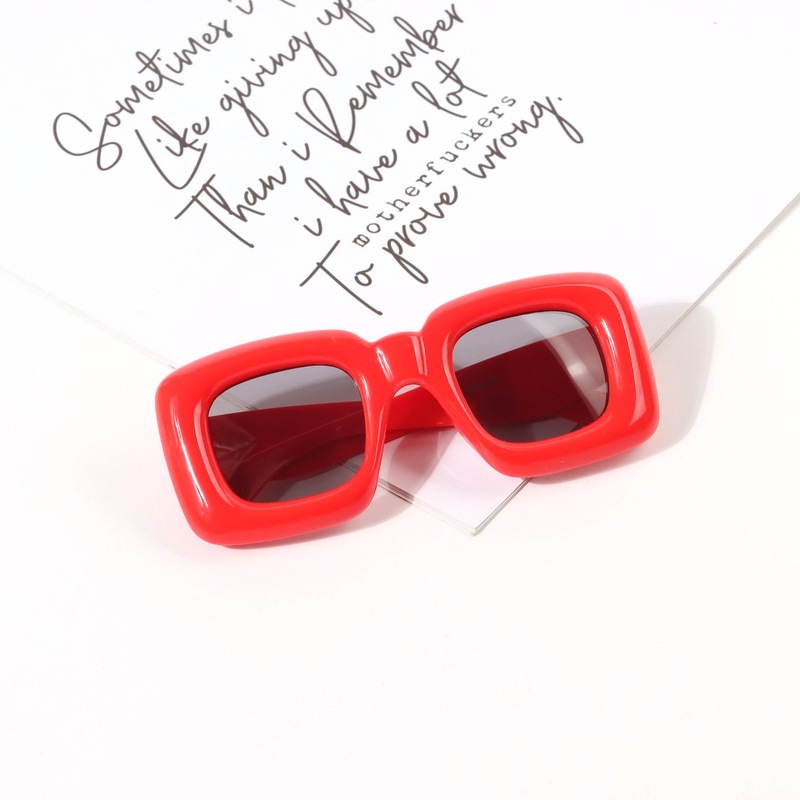 Sometimes i
Like giving up
Than i Remember
i have a lot
motherfuckers
To prove wrong.